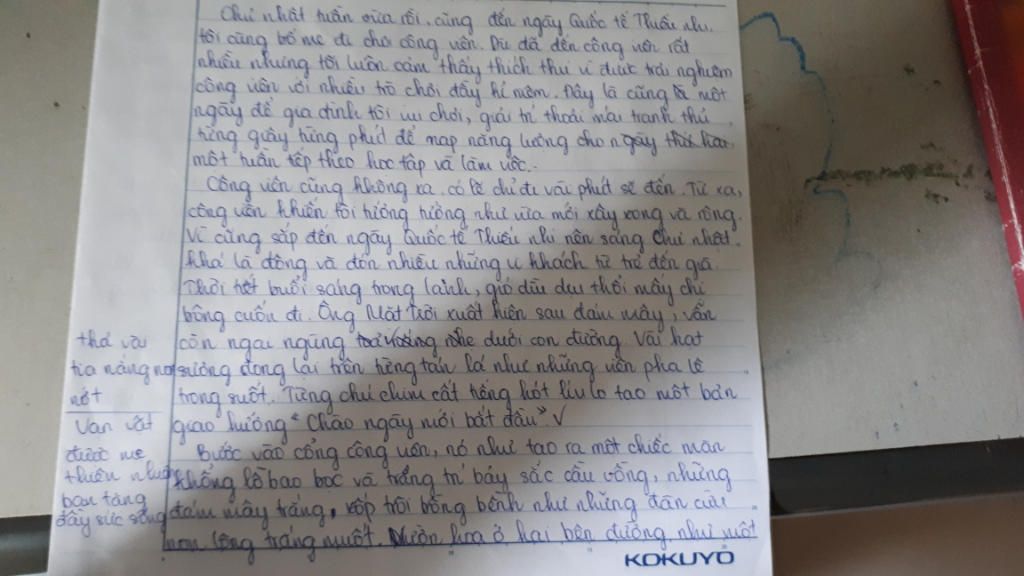 Chủ nhật tuần vừa rồi, cũng đến ngày Quốc tế Thiếu nhi,
tôi cùng bố mẹ đi chơi công viên. Dù đã đến công viên rất
nhiều nhưng tôi luôn cảm thấy thích thú vì được trải nghiệm
công viên với nhiều trò chơi đầy kì niệm. Đây là cũng là một
ngày để gia đình tôi vui chơi, giải trí thoải mái tranh thủ
từng giây từng phút để nạp năng lượng cho ngày
một tuần tiếp theo học tập và làm việc.
Công viên cũng không xa, có lẽ chỉ đi vài phút sẽ đến. Từ xa,
công viên khiến tôi tưởng tượng như vừa mới xây xong và rộng.
Vì cũng sắp đến ngày Quốc tế Thiếu nhi nên sáng Chủ nhật
khá là đông và đón nhiều những vị khách từ trẻ đến già.
Thời tiết buổi sáng trong lành, gió dịu dịu thổi mấy chị
bông cuốn đi. Ông Mặt trời xuất hiện sau đám mây, vẫn
còn ngại ngùng nhẹ dưới con đường. Vài hạt
sương đọng lại trên từng tán lá như những viên pha lê
trong suốt. Từng chú chim cất tiếng hót líu lo tạo một bản
giao hưởng "Chào ngày mới bắt đầu". V
thả vài
tia nắng
nớt
Vạn vật
được mẹ
thiên nhiên
ban tặng
đầy sức sống
Bước vào cổng công viên, nó như tạo ra một chiếc màn
khổng lồ bao bọc và trang trí bảy sắc cầu vồng, những
đám mây trắng, xốp trôi bồng bềnh như những đàn cừu
non lông trắng muốt. Vườn hoa ở hai bên đường như một
KOKUYO